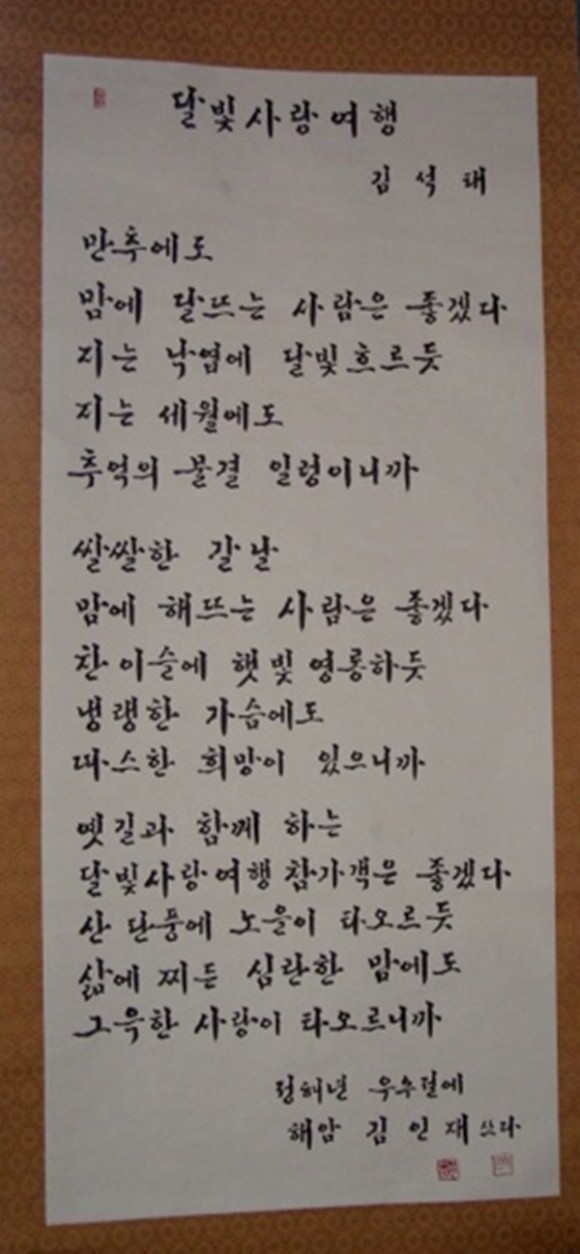 달빛사랑여행
김석태
만추에도
맘에 달뜨는 사람은 좋겠다
지는 낙엽에 달빛흐르듯
지는 세월에도
추억의 물결 일렁이니까
쌀쌀한 갈날
맘에 해뜨는 사람은 좋겠다
찬이슬에 햇빛영롱하듯
냉랭한 가슴에도
따스한 희망이 있으니까
옛길과 함께 하는
달빛사랑여행 참가객은 좋겠다
산단풍에 노을이 타오르듯
삶에 찌든 심란한 맘에도
그윽한 사랑이 타오르니까
정해년 우수절에
해암 김인재 쓰다